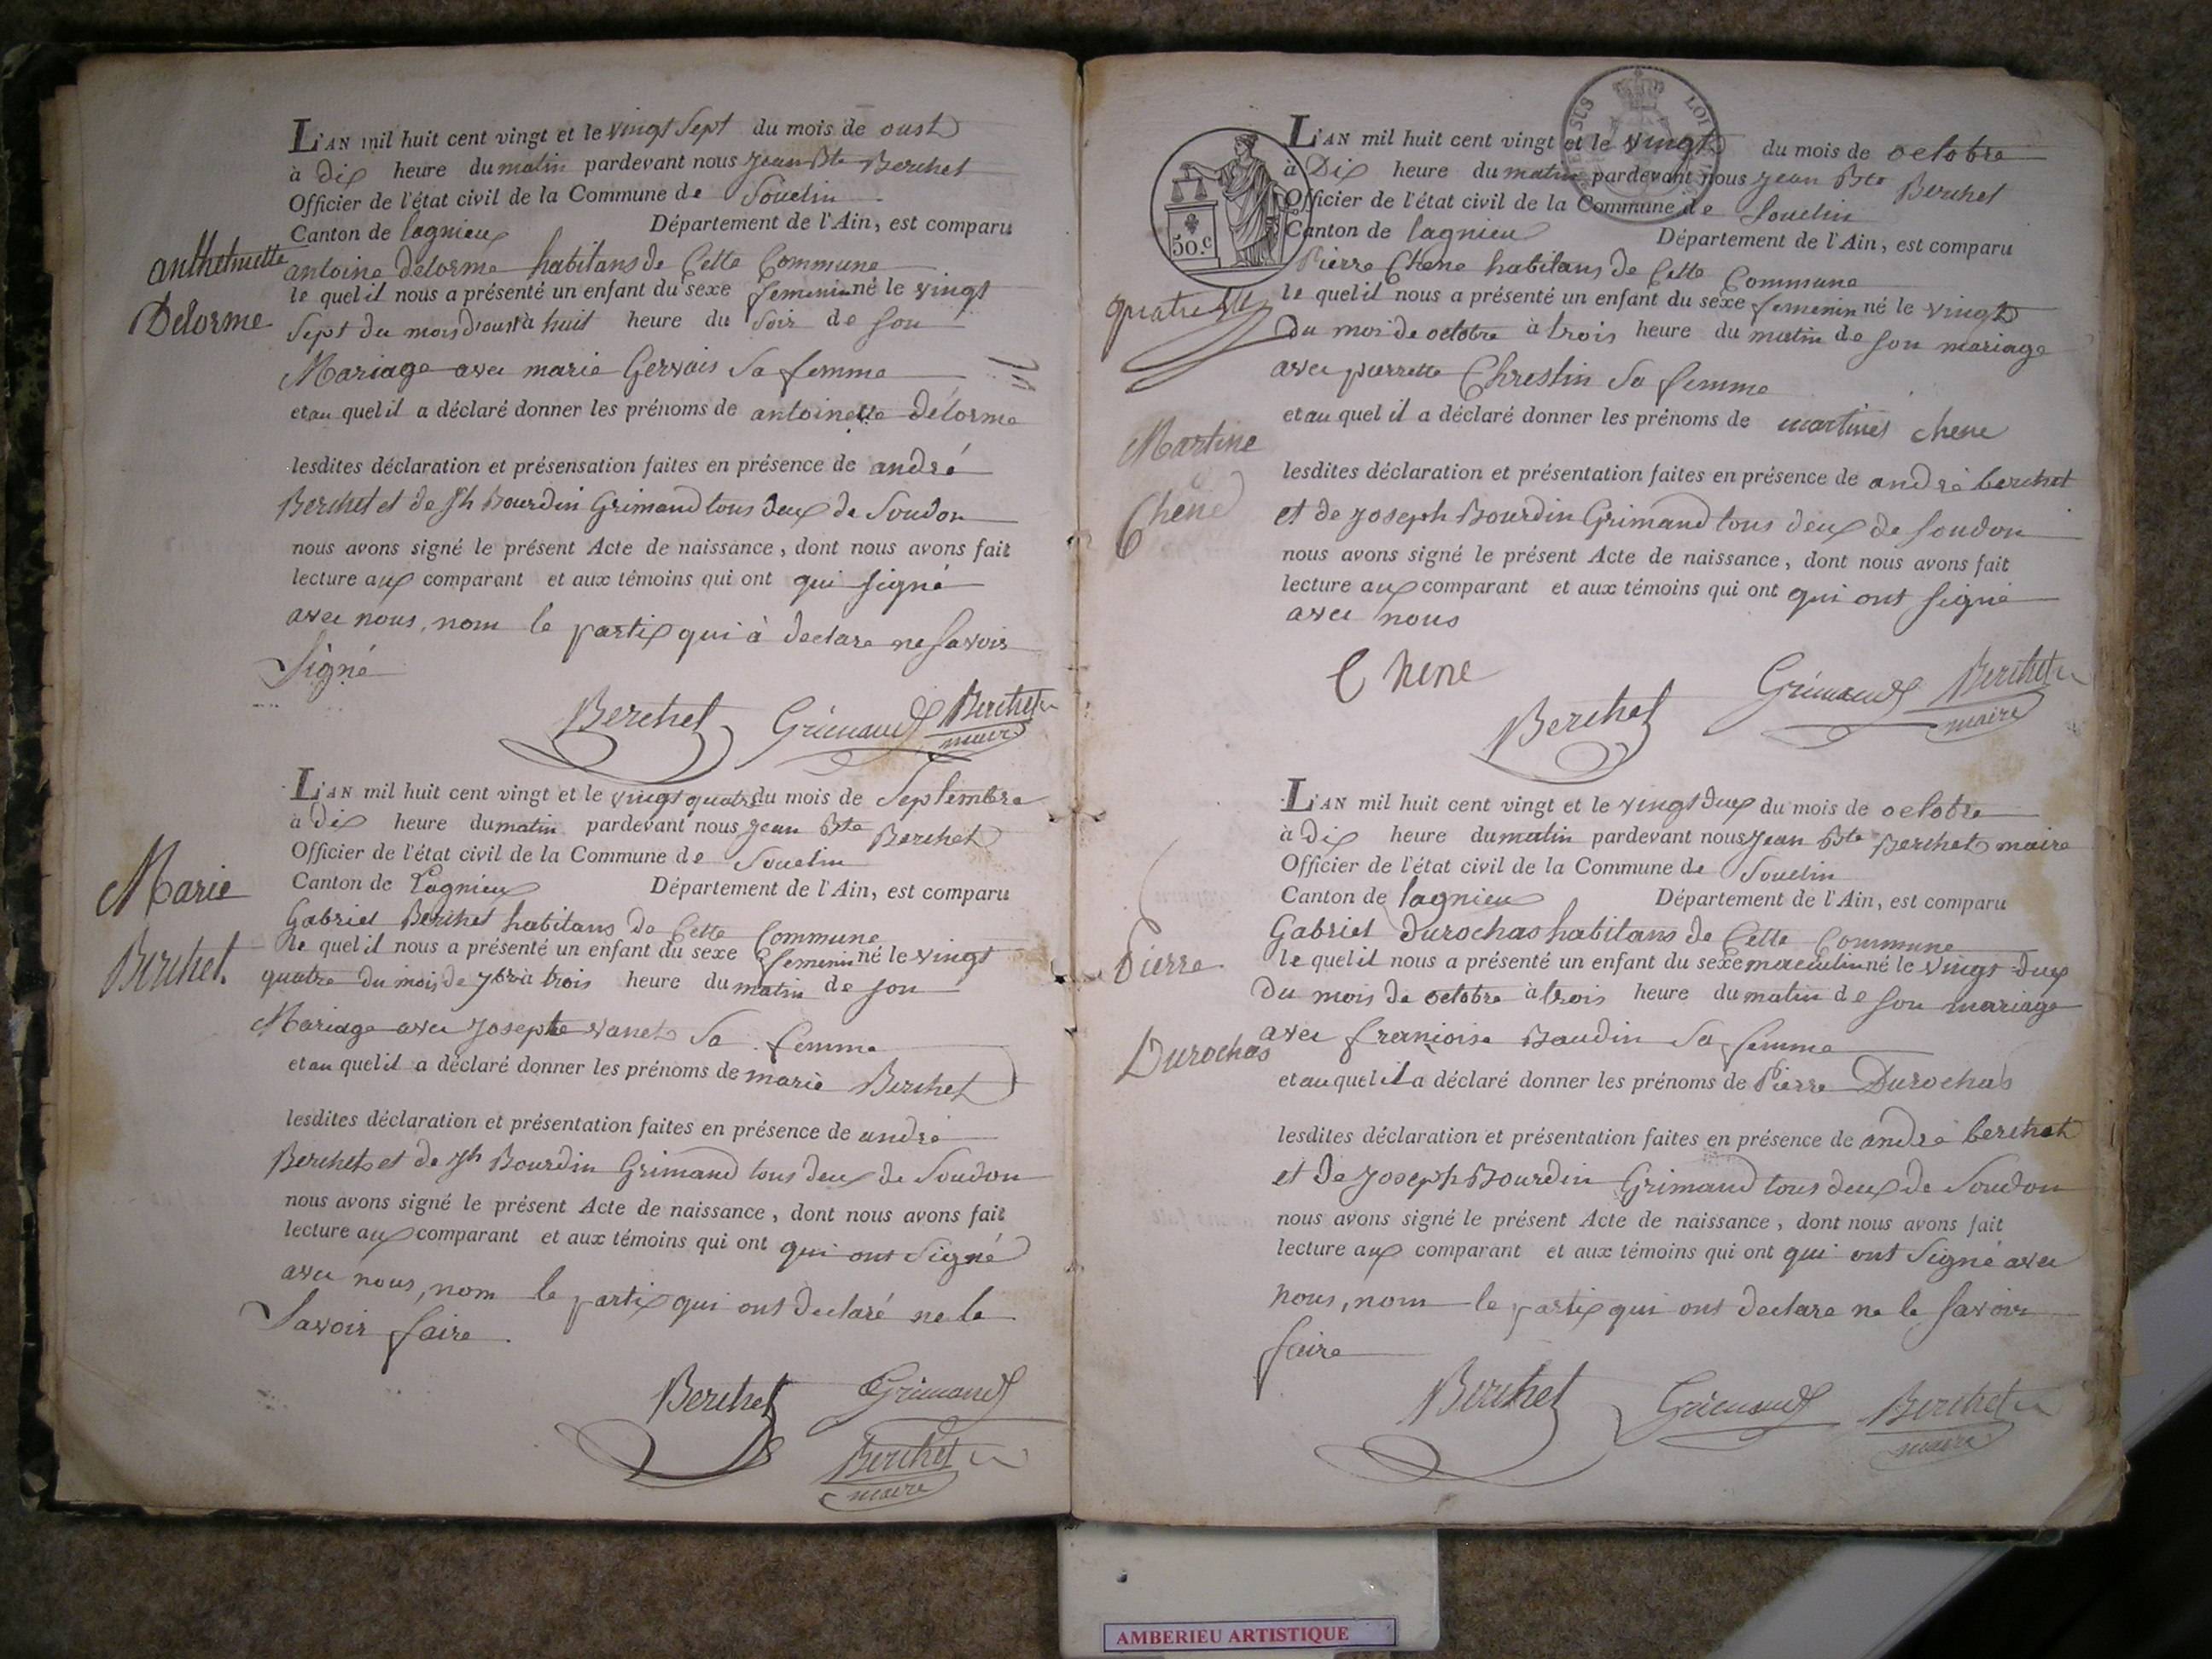 L'AN mil huit cent vingt et le vingt Sept du mois de oust
à dix heure du matin pardevant nous Jean Bte Berchet
Officier de l'état civil de la Commune de Souclin
Canton de lagnieux Département de l'Ain, est comparu
anthelmette
antoine delorme habitans de Cette Commune
le quel il nous a présenté un enfant du sexe femeninné le vingt
Delorme
Sept du mois d'oust à huit heure du Soir de son
Mariage avec marie Gervais Sa femme
et au quel il a déclaré donner les prénoms de antoinette delorme
lesdites déclaration et présensation faites en présence de andré
Berchet et de Jh Bourdin Grimand tous deux de Soudon
nous avons signé le présent Acte de naissance, dont nous avons fait
lecture aux comparant et aux témoins qui ont qui signé
avec nous, nom le partix qui à declare ne savoir
Signé
Berchet Grimand Berchet
maire
L'AN mil huit cent vingt et le vingt quatre du mois de Septembre
à dix heure du matin pardevant nous Jean Bte Berchet
Officier de l'état civil de la Commune de Souclin
Canton de Lagnieux Département de l'Ain, est comparu
Marie
Gabriel Berchet habitans de Cette Commune
le quel il nous a présenté un enfant du sexe femeninné le vingt
Berchet.
quatre du mois de 7bre à trois heure du matin de son
Mariage avec Josephte vanet Sa femme
et au quel il a déclaré donner les prénoms de marie Berchet
lesdites déclaration et présentation faites en présence de andré
Berchet et de Jh Bourdin Grimand tous deux de Soudon
nous avons signé le présent Acte de naissance, dont nous avons fait
lecture aux comparant et aux témoins qui ont qui ont Signé
avec nous, nom le partix qui ont declaré ne le
Savoir faire
Berchet Grimand
Berchet
maire
SUS LOI
50.c
L'AN mil huit cent vingt et le vingt du mois de octobre
à Dix heure du matin pardevant nous Jean Bte Berchet
Officier de l'état civil de la Commune de Souclin
Canton de lagnieu Département de l'Ain, est comparu
Pierre Chene habitans de Cette Commune
le quel il nous a présenté un enfant du sexe femenin né le vingt
quatre
du moi de octobre à trois heure du matin de son mariage
avec pierrette Chrestin Sa femme
et au quel il a déclaré donner les prénoms de martines chene
Martine
Chene
lesdites déclaration et présentation faites en présence de andré berchet
et de Joseph Bourdin Grimand tous deux de Soudon
nous avons signé le présent Acte de naissance, dont nous avons fait
lecture aux comparant et aux témoins qui ont qui ont signé
avec nous
Chene
Berchet Grimand Berchet
maire
L'AN mil huit cent vingt et le vingt dux du mois de octobre
à dix heure du matin pardevant nous Jean Bte Berchet maire
Officier de l'état civil de la Commune de Souclin
Canton de lagnieu Département de l'Ain, est comparu
Gabriel Durochas habitans de Cette Commune
Pierre
le quel il nous a présenté un enfant du sexe masculin né le vingt dux
du mois de octobre à trois heure du matin de son mariage
avec francoise Baudin Sa femme
Durochas
et au quel il a déclaré donner les prénoms de Pierre Durochas
lesdites déclaration et présentation faites en présence de andré berchet
et de Joseph Bourdin Grimand tous deux de Soudon
nous avons signé le présent Acte de naissance, dont nous avons fait
lecture aux comparant et aux témoins qui ont qui ont Signé avec
nous, nom le partix qui ont declare ne le savoir
faire
Berchet Grimand Berchet
maire
AMBERIEU ARTISTIQUE